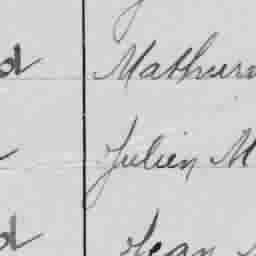 d Mathur
Julien M
d Jean